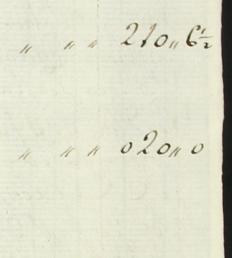 〃 〃 〃 210〃6½
〃 〃 〃 020〃0